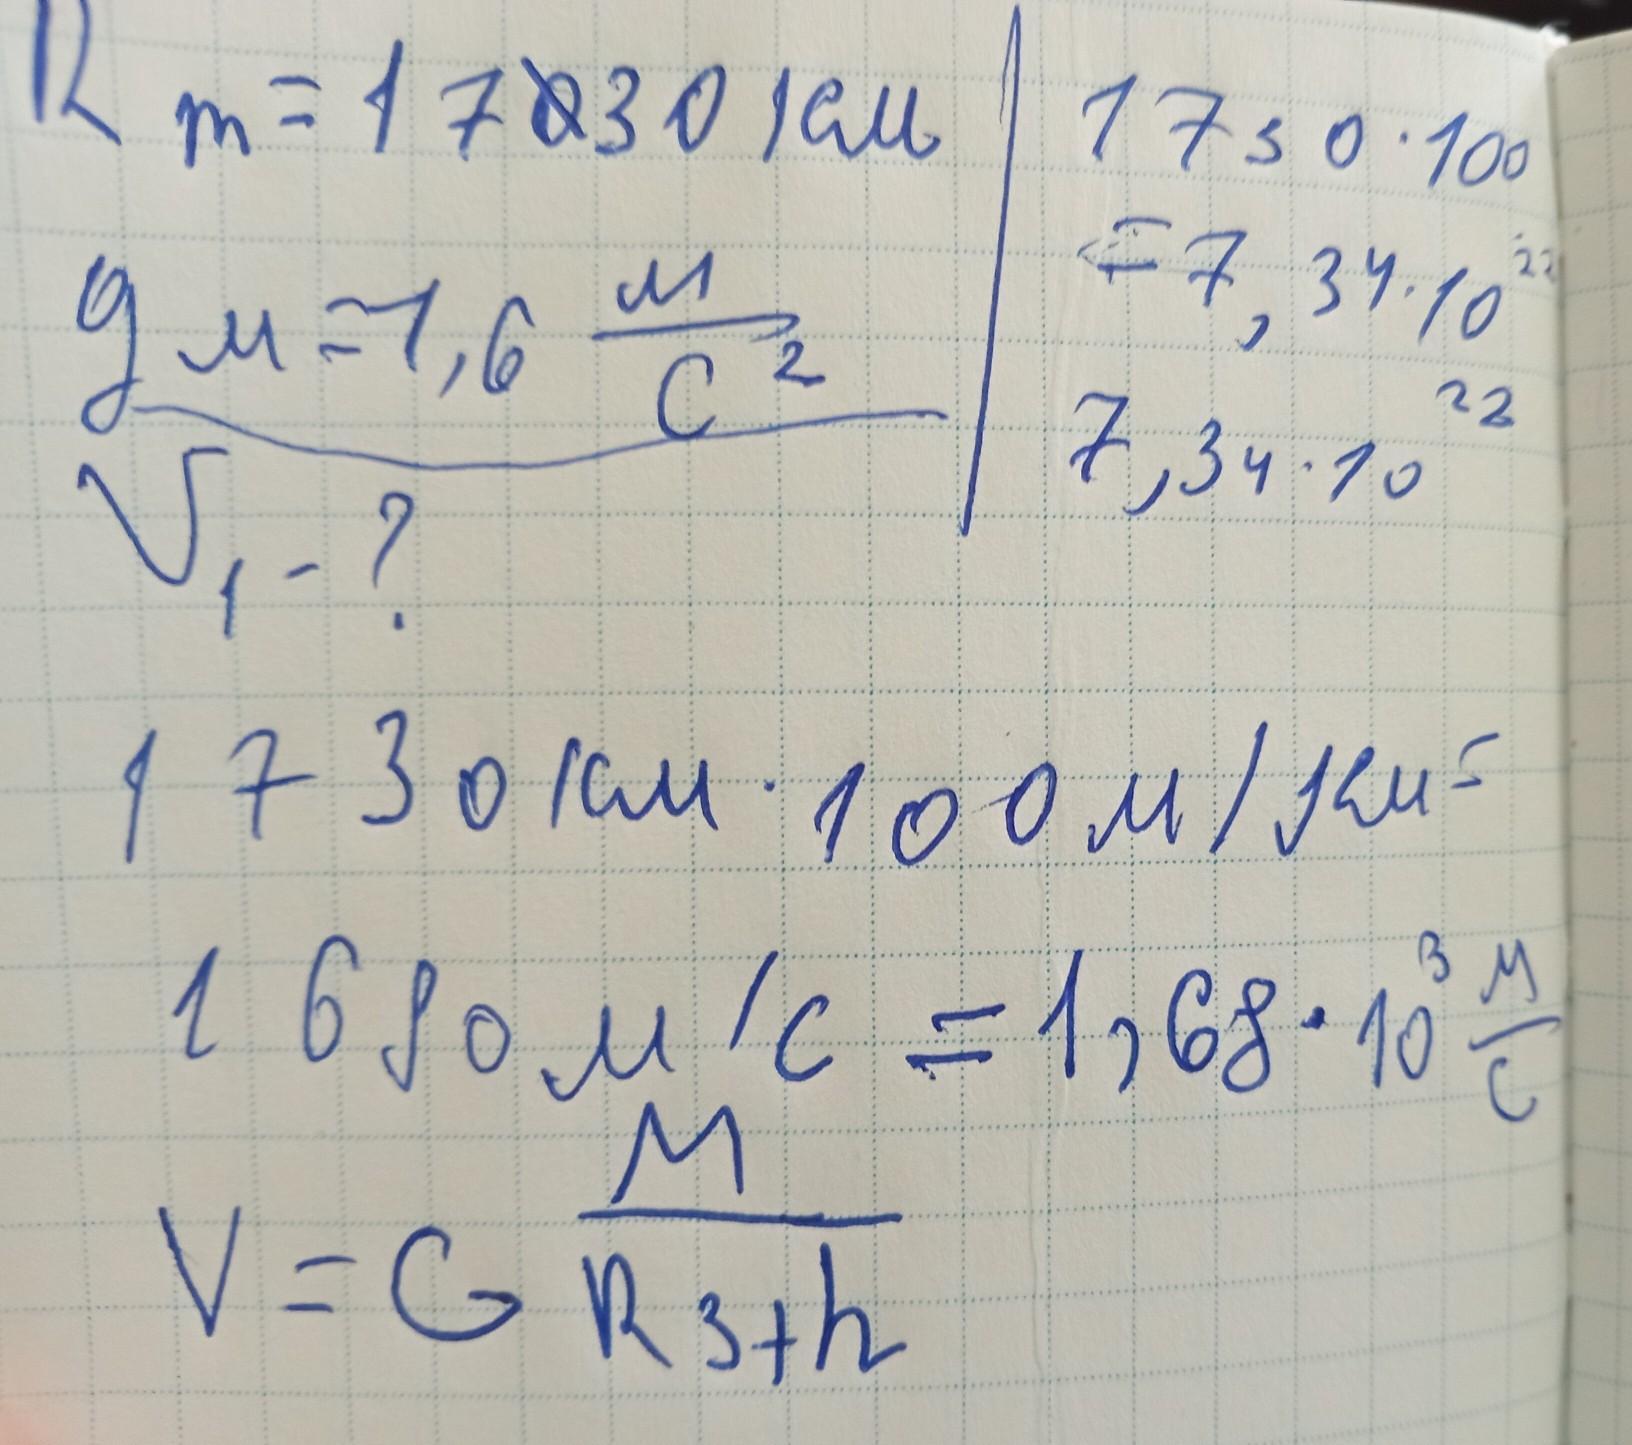 R m = 1730 км
g м = 1,6 м/с²
V₁ - ?
1730 · 100
= 7,34 · 10²²
7,34 · 10²²
1730 км · 100 м/км =
1680 м/с = 1,68 · 10³ м/с
V = G M/(R з + h)